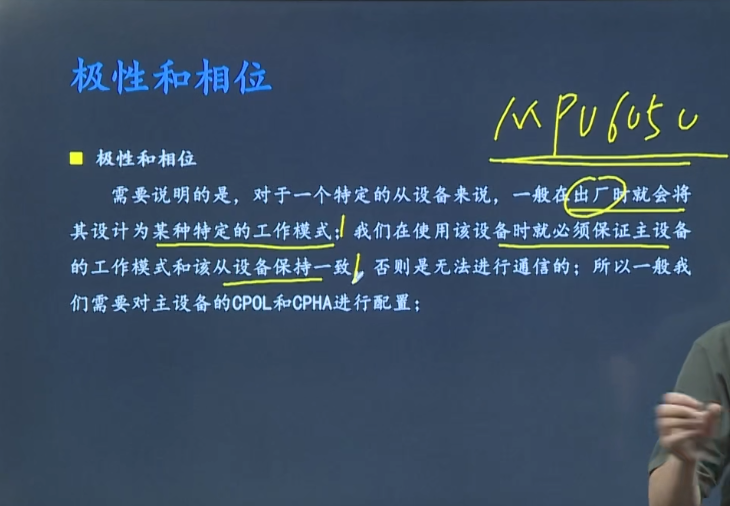 极性和相位
MPU6050
极性和相位
需要说明的是，对于一个特定的从设备来说，一般在出厂时就会将
其设计为某种特定的工作模式；我们在使用该设备时就必须保证主设备
的工作模式和该从设备保持一致，否则是无法进行通信的；所以一般我
们需要对主设备的CPOL和CPHA进行配置；